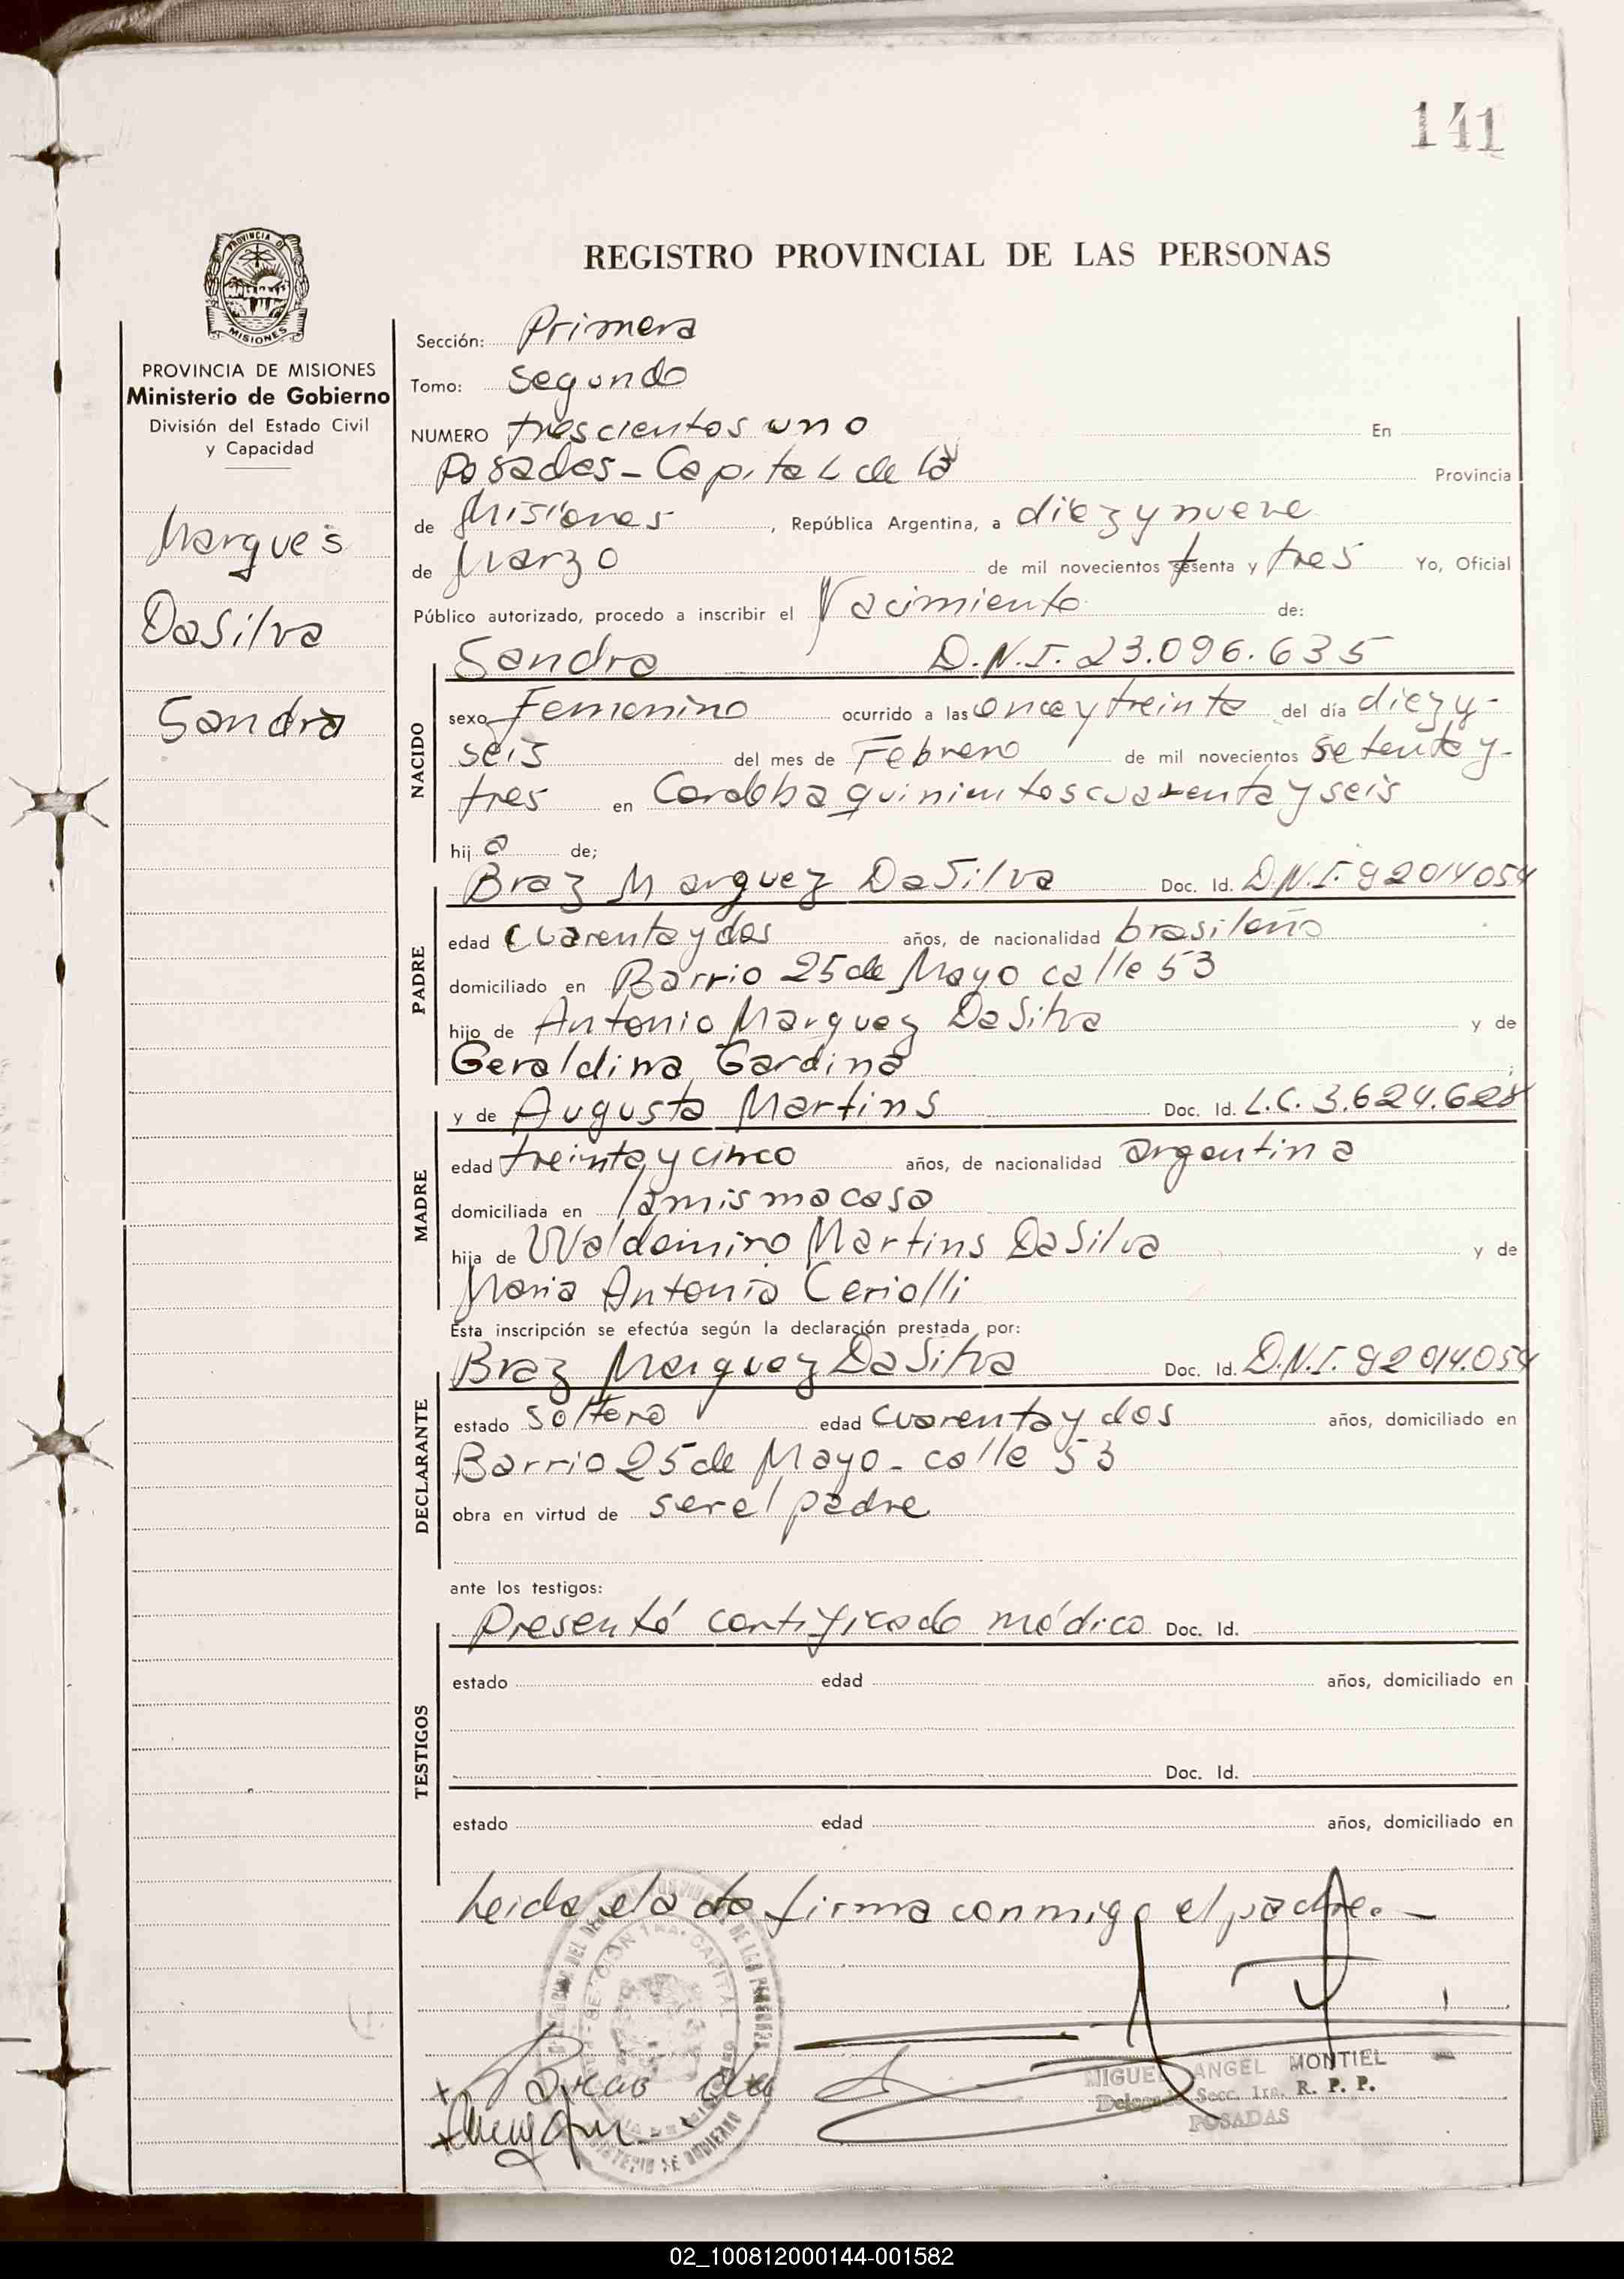 141
PROVINCIA DE
MISIONES
REGISTRO PROVINCIAL DE LAS PERSONAS
PROVINCIA DE MISIONES
Ministerio de Gobierno
División del Estado Civil
y Capacidad
Marques
DaSilva
Sandra
Sección: Primera
Tomo: Segundo
NUMERO trescientos uno En
Posadas - Capital de la Provincia
de Misiones, República Argentina, a diez y nueve
de Marzo de mil novecientos sesenta y tres Yo, Oficial
Público autorizado, procedo a inscribir el Nacimiento de:
NACIDO
Sandra D.N.I. 23.096.635
sexo Femenino ocurrido a las once y treinta del día diez y-
seis del mes de Febrero de mil novecientos setenta y-
tres en Cordoba quinientos cuarenta y seis
hija de;
PADRE
Braz Marquez DaSilva Doc. Id. D.N.I. 92014054
edad cuarenta y dos años, de nacionalidad brasileño
domiciliado en Barrio 25 de Mayo calle 53
hijo de Antonio Marquez DaSilva y de
Geraldina Gardina;
MADRE
y de Augusta Martins Doc. Id. L.C. 3.624.628
edad treinta y cinco años, de nacionalidad argentina
domiciliada en la misma casa
hija de Waldomiro Martins DaSilva y de
Maria Antonia Ceriolli
Esta inscripción se efectúa según la declaración prestada por:
DECLARANTE
Braz Marquez DaSilva Doc. Id. D.N.I. 92014.054
estado soltero edad cuarenta y dos años, domiciliado en
Barrio 25 de Mayo - calle 53
obra en virtud de ser el padre
ante los testigos:
TESTIGOS
Presentó certificado médico Doc. Id.
estado edad años, domiciliado en
Doc. Id.
estado edad años, domiciliado en
Leida el acta firma conmigo el padre. -
SECCION 1RA. CAPITAL
MINISTERIO DE GOBIERNO
MIGUEL ANGEL MONTIEL
Delegado Secc. 1ra. R. P. P.
POSADAS
02_100812000144-001582